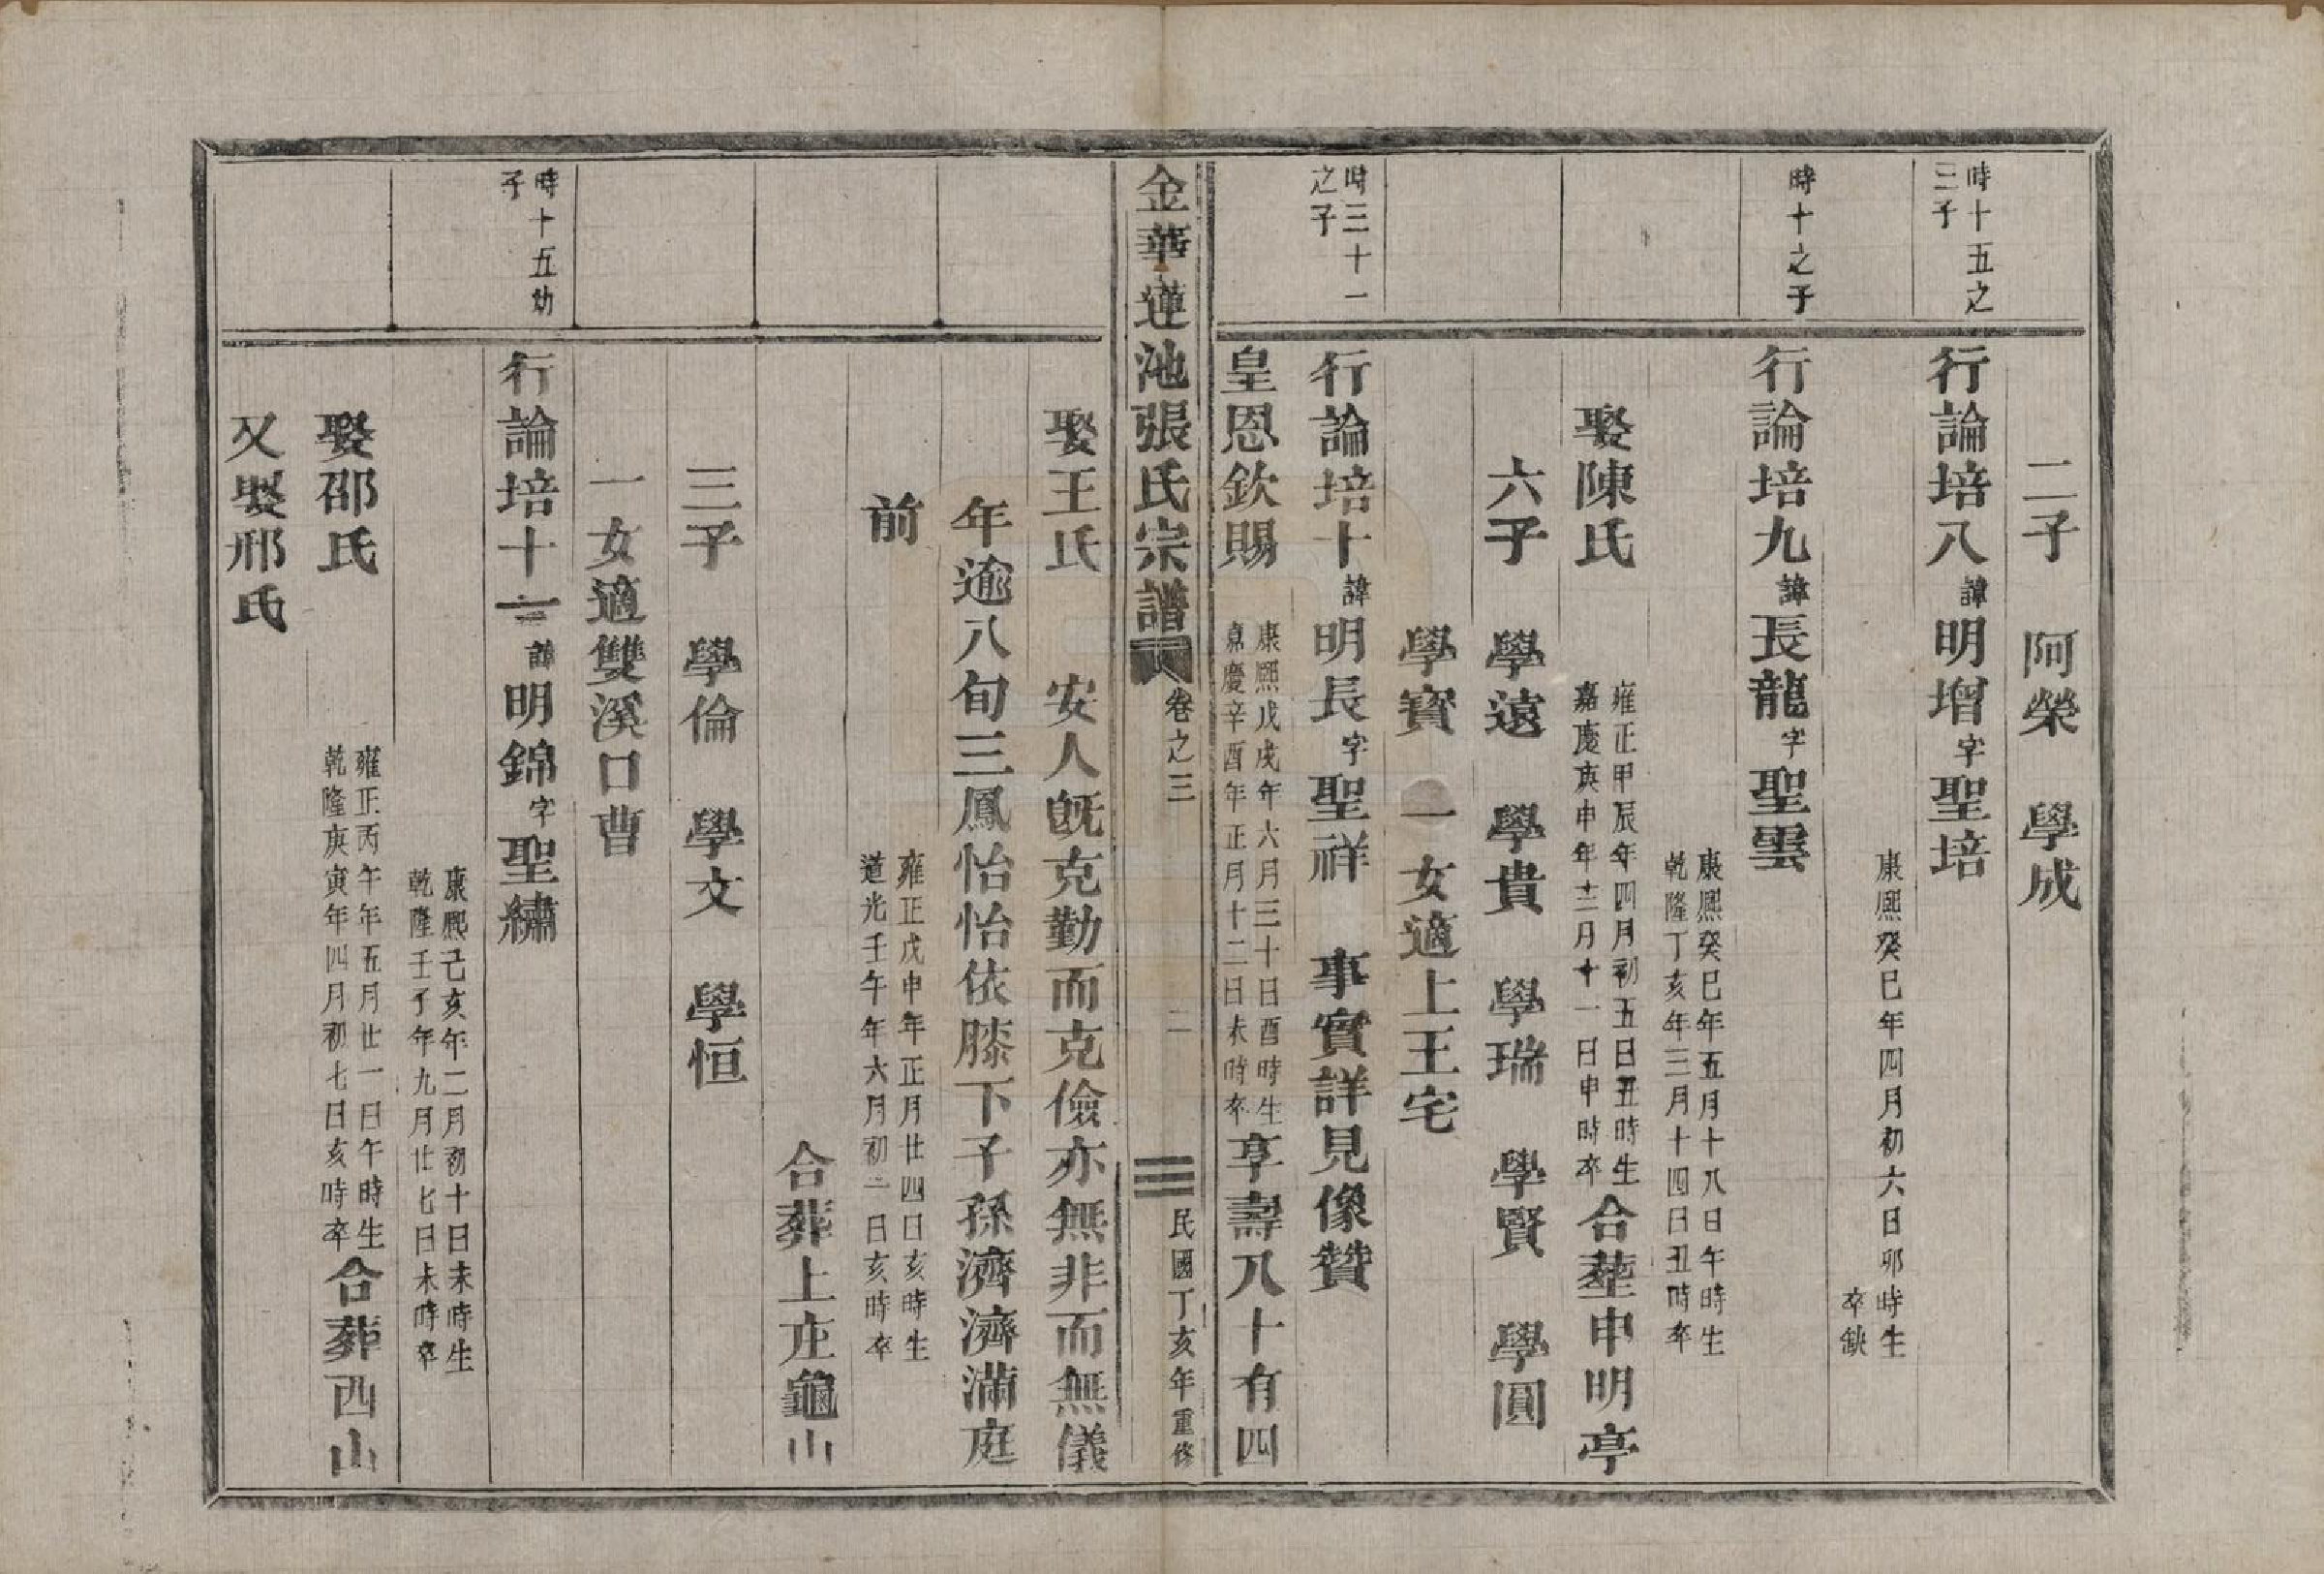 二子　阿榮　學成
時十五之
三子
行論培八諱明增字聖培
康熈癸巳年四月初六日卯時生
卒缺
時十之子
行論培九諱長龍字聖雲
康熈癸巳年五月十八日午時生
乾隆丁亥年三月十四日丑時卒
娶陳氏
雍正甲辰年四月初五日丑時生
嘉慶庚申年十二月十一日申時卒
合塟申明亭
六子　學遠　學貴　學瑞　學賢　學圓
學寶　一女適上王宅
時三十一
之子
行論培十諱明長字聖祥　事實詳見像贊
皇恩欽賜
康熈戊戌年六月三十日酉時生
嘉慶辛酉年正月十二日未時卒
享壽八十有四
金華蓮池張氏宗譜
卷之三
二
民國丁亥年重修
娶王氏　安人旣克勤而克儉亦無非而無儀
年逾八旬三鳳怡怡依膝下子孫濟濟滿庭
前
雍正戊申年正月廿四日亥時生
道光壬午年六月初一日亥時卒
合葬上庄龜山
三子　學倫　學文　學恒
一女適雙溪口曹
時十五幼
子
行論培十二諱明錦字聖繡
康熈己亥年二月初十日未時生
乾隆壬子年九月廿七日未時卒
娶邵氏
雍正丙午年五月廿一日午時生
乾隆庚寅年四月初七日亥時卒
合葬西山
又娶邢氏